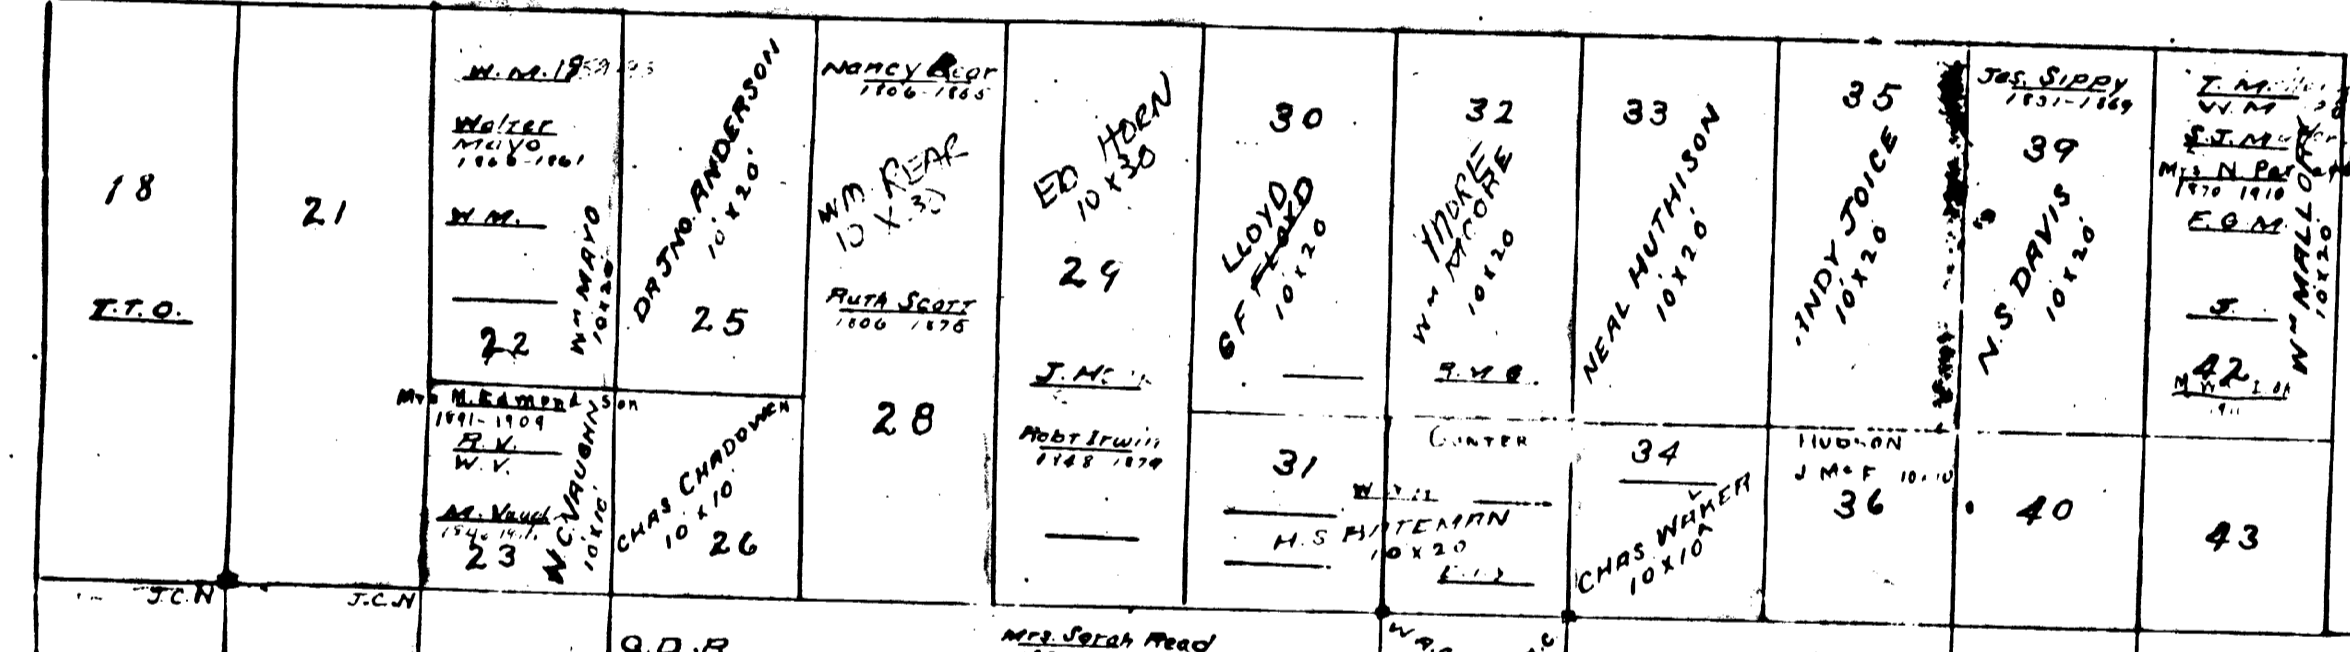 18
T.T.O.
J.C.N
21
J.C.N
W.M.
Walter
Mayo
W M.
22
Wm MAYO
10x20
Mrs M. Edmondson
1891-1909
R.V.
W.V.
M.
23
W.C. VAUGHN
10x10'
DR JNO. ANDERSON
10'x20'
25
CHAS. CHADOWEN
10 x 10'
26
Nancy
1806-1865
WM. REAR
10 X 30
RUTH SCOTT
1806 1875
28
ED HORN
10 x 30
29
J.
Robt Irwin
1848 1879
30
LLOYD
G F FLOYD
10'x20
31
32
MOORE
Wm MOORE
10x20
GUNTER
H.S.
10x20
33
NEAL HUTHISON
10'x20'
34
CHAS. WAKER
10x10
35
ANDY JOICE
10'x20'
HUDSON
J McF 10x10
36
Jas. SIPPY
1831-1869
39
N.S DAVIS
10x20'
40
T. M.
W. M
S.J. M
Mrs N
1870 1910
E.G M.
J.
42
Wm MALLORY
10x20'
43
Q.D.R
Mrs. Sarah Read